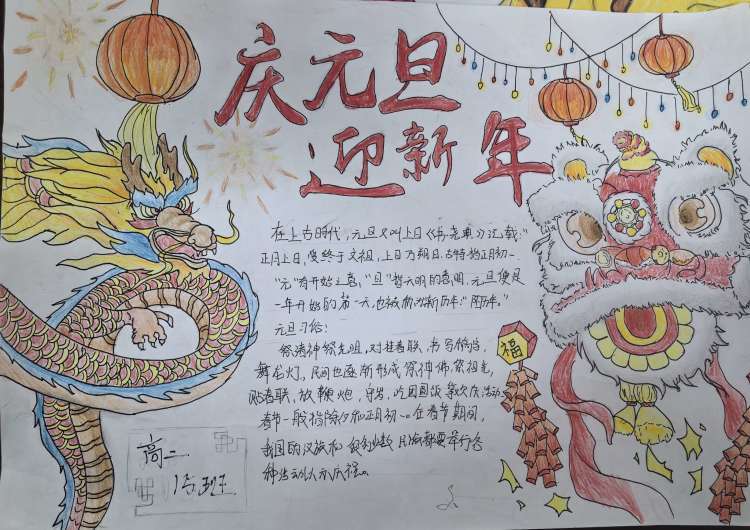 庆元旦
迎新年
在上古时代,元旦又叫上日《书·尧典》记载:“
正月上日,受终于文祖,上日乃朔日.古特指正月初一
“元”有开始之意,“旦”指天明的意思,元旦便是
一年开始的第一天,也被称为新历年:“阳历年。”
元旦习俗:
祭诸神祭先祖,对挂春联、书写
舞龙灯,民间也逐渐形成祭神佛,祭祖先
贴春联,放鞭炮,守岁,吃团圆饭等众庆活动
春节一般指除夕和正月初一。在春节期间,
我国的汉族和少数民族都要举行各
种
福
高二
15班